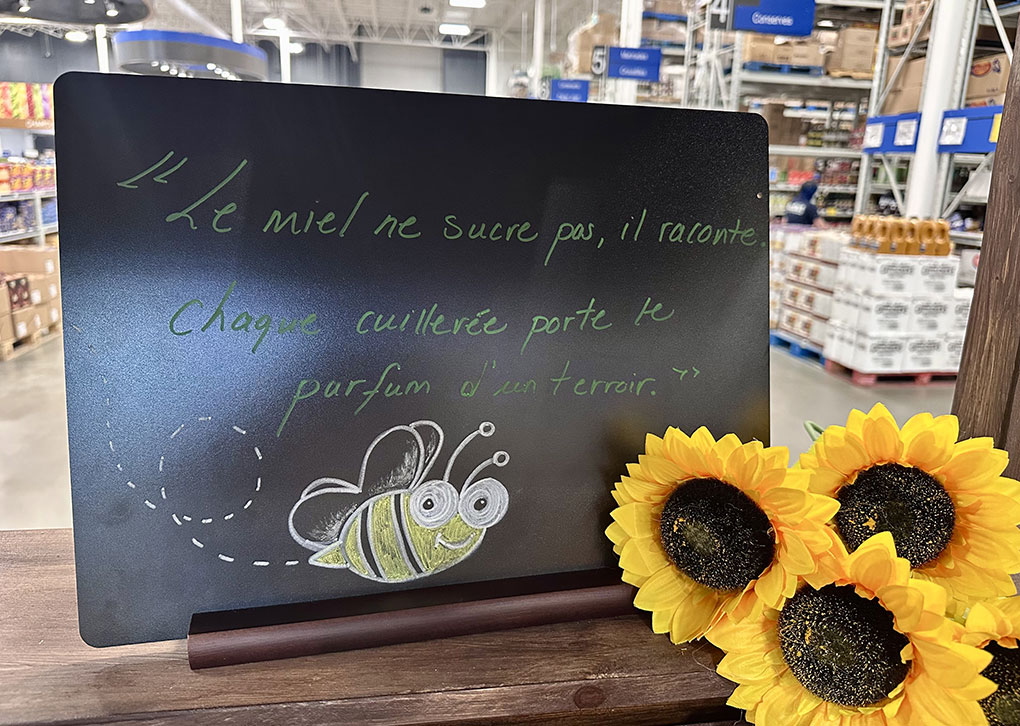 4
Conserves
5
“Le miel ne sucre pas, il raconte.
Chaque cuillerée porte le
parfum d'un terroir.”